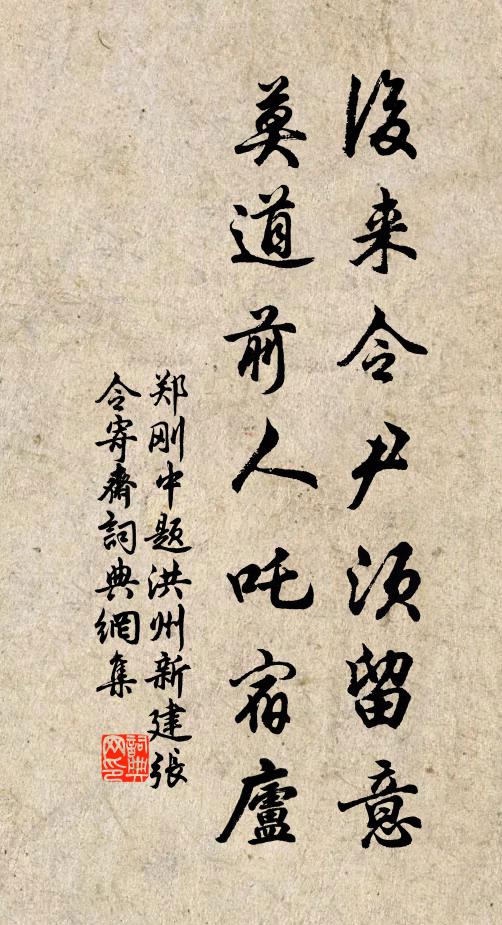 後来令尹須留意
莫道前人吒宿廬
郑刚中题洪州新建張
令寄齋詞典網集
詞典
网印